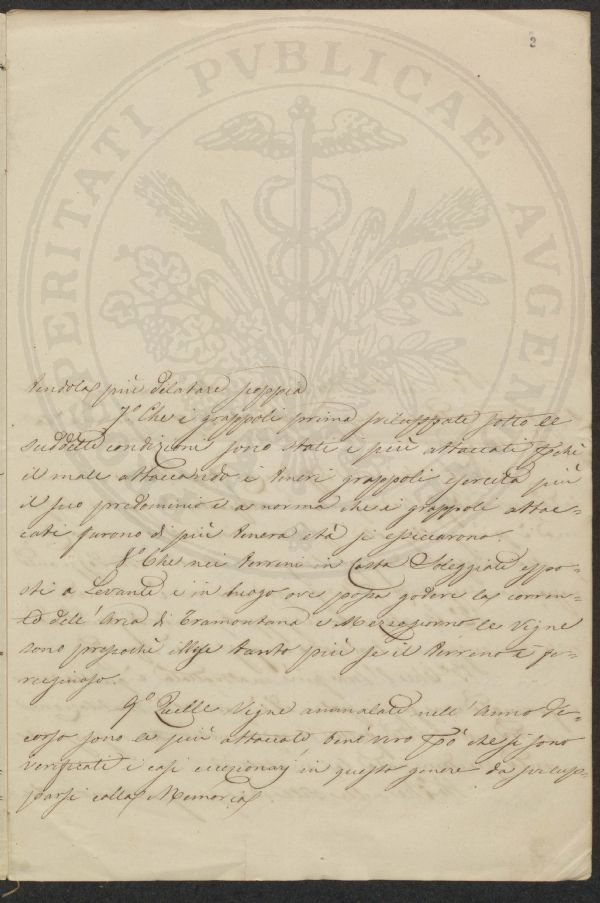 2
PROSPERITATI PVBLICAE AVGENDAE
tendola più dilatare scoppia
7.º Che i grappoli prima sviluppati sotto le
suddette condizioni sono stati i più attaccati pchè
il male attaccando i teneri grappoli esercita più
il suo predominio e a norma che i grappoli attac-
cati furono di più tenera età si essiccarono.
8.º Che nei terreni in Costa Soleggiate espo-
sti a Levante e in luogo ove possa godere la corren-
te dell'Aria di Tramontana e Mezzogiorno le Vigne
sono pressochè illese tanto più se il terreno è
9.º Quelle Vigne ammalate nell'Anno de-
corso sono le più attaccate, bene vero pò che si sono
verificati i casi eccezionarj in questo genere da svilup-
parsi colla Memoria